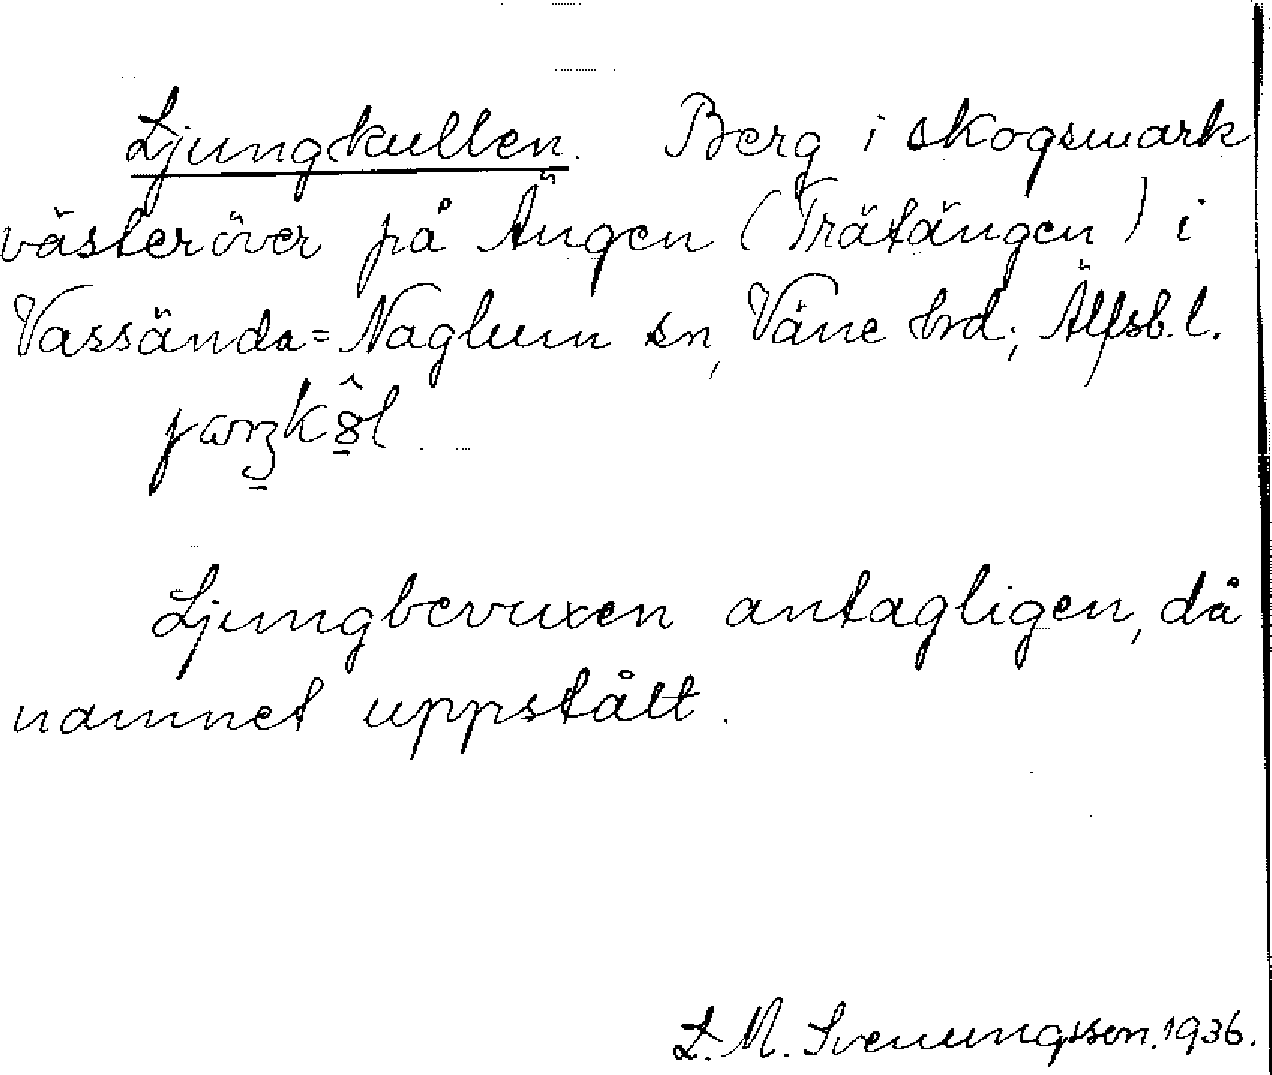 Ljungkullen. Berg i skogsmark
västeröver på Ängen (Trätängen) i
Vassända=Naglum sn, Väne hrd; Älfsb. l.
Ljungbevuxen antagligen, då
namnet uppstått.
L. M. Svenungsson. 1936.